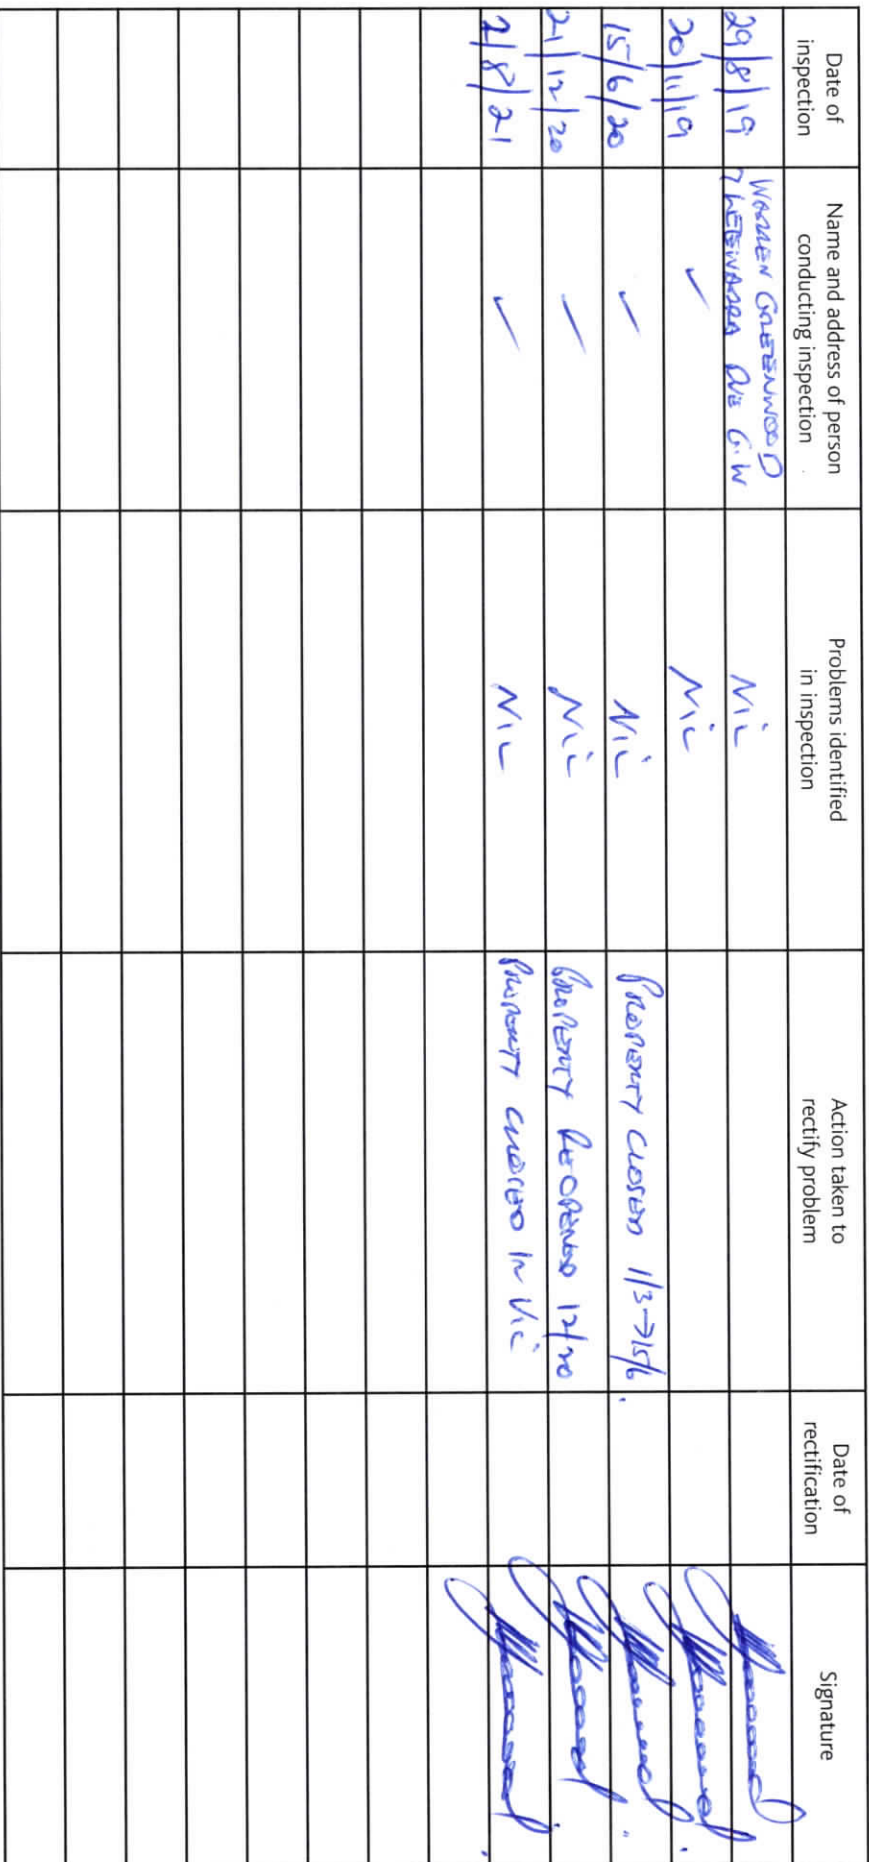 Date of inspection
Name and address of person conducting inspection
Problems identified in inspection
Action taken to rectify problem
Date of rectification
Signature
29/8/19 WARREN GREENWOOD
AVE G.W NIL
20/11/19 ✓ NIL
15/6/20 ✓ NIL PROPERTY CLOSED 1/3→15/6.
21/12/20 ✓ NIL PROPERTY REOPENED 12/20
2/8/21 ✓ NIL PROPERTY CLOSED IN VIC